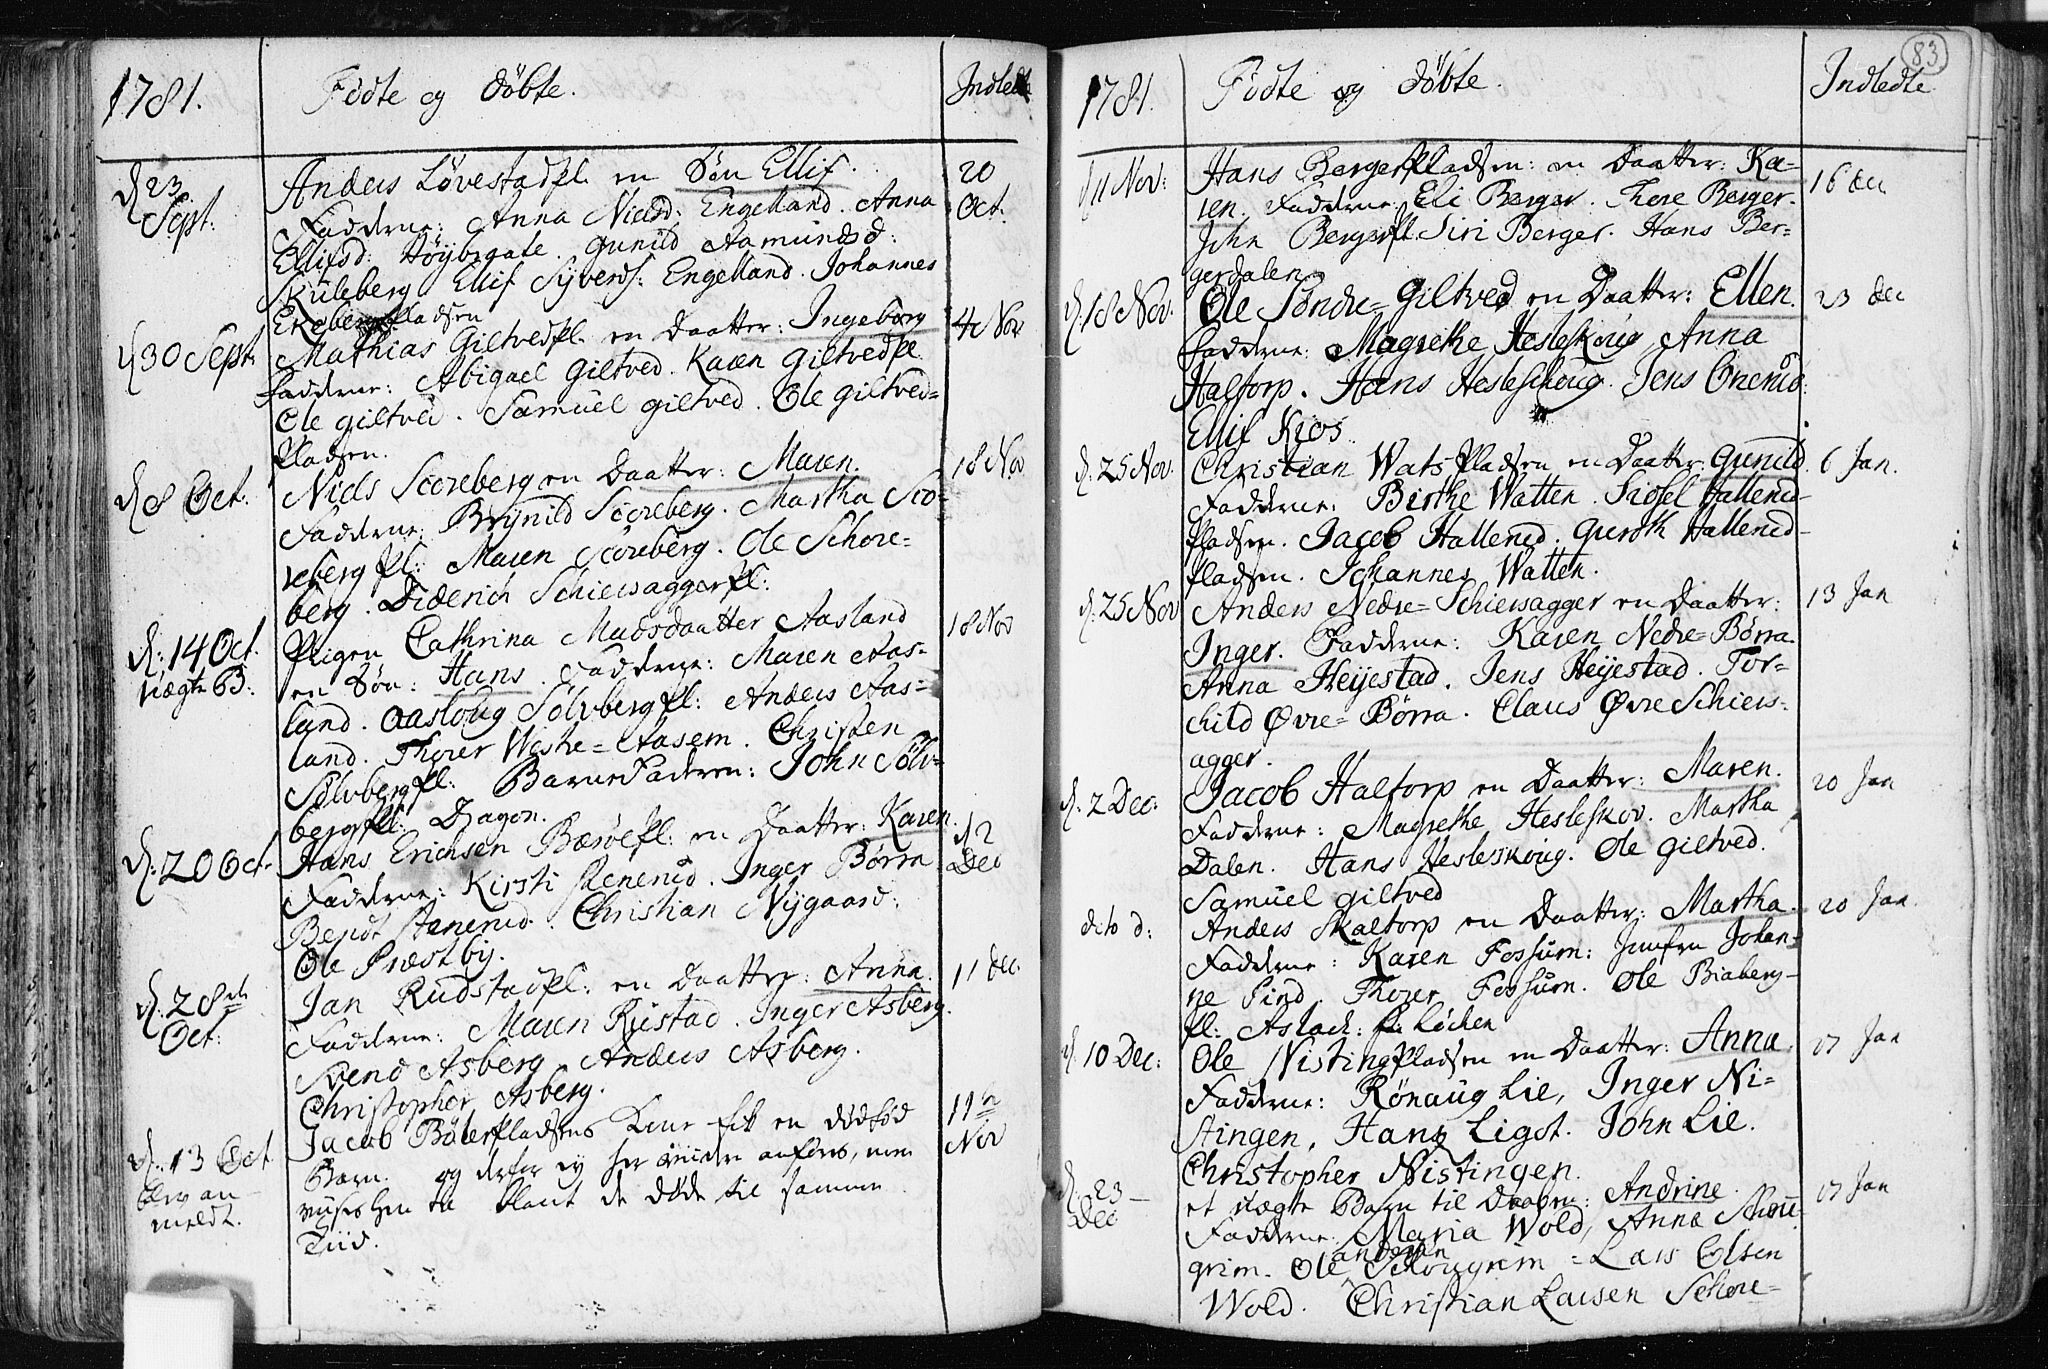 1781. Födte og döbte. Indledte
d 23 Sept. Anders Lövestadpl. en Sön Ellif. 20 Oct.
Fadderne: Anna Nielsd: Engelland. Anna
Ellifsd: Höybygate. Gunild Aamundsd:
Skuleberg Ellif Syvers: Engelland. Johannes
Ekebergpladsen
d 30 Sept. Mathias Giltvedpl. en Daatter: Ingeborg 4 Nov
Fadderne: Abigael Giltved. Karen Giltvedpl.
Ole Giltved. Samuel Giltved. Ole Giltved=
Pladsen.
d 8 Oct. Niels Scoreberg en Daatter: Maren. 18 Nov
Fadderne: Brynild Scoreberg. Martha Sco-
reberg pl: Maren Scoreberg. Ole Schore=
berg. Diderich Schiersaggerpl:
d: 14 Oct. Pigen Cathrina Madsdaatter Aasland 18 Nov
uægte B: en Sön: Hans. Fadderne: Maren Aas=
land. Aasloug Sölvbergpl: Anders Aas=
land. Thorer Westre=Aasem. Christen
Sölvbergpl: Barnefaderen: John Sölv=
bergpl: Dragon.
d: 20 Oct. Hans Erichsen Bæroepl: en Daatter: Karen. d 2 Dec
Fadderne: Kirsti Stenerud. Inger Börra
Bendt Stenerud. Christian Nygaard.
Ole Præstby.
d: 28de Oct: Jan Rudstadpl: en Daatter: Anna. 11 dec.
Fadderne: Maren Rustad. Inger Asberg.
Svend Asberg Anders Asberg.
Christopher Asberg.
d: 13 Oct. Jacob Bölerpladsens Kone fik en dödfød 11te Nov
blev an- Barn. og derfor ey her videre anføres, men
meldt. blant de døde til samme
Tiid.
83
1781. Födte og döbte. Indledte
d 11 Nov: Hans Bergerpladsen: en Daatter: Ka- 16 dec
ren. Fadderne: Eli Berger. Thore Berger.
John Bergerpl. Siri Berger. Hans Ber=
gerdalen
d. 18 Nov. Ole Söndre=Giltved en Daatter: Ellen. 23 dec
Fadderne: Magrethe Hesleskoug Anna
Haltorp. Hans Hesleschoug. Jens Onerud
Ellif Kios.
d: 25 Nov. Christian Watspladsen en Daatter: Gunild. 6 Jan.
Fadderne: Birthe Watten. Siösel Hallerud-
Pladsen. Jacob Hallerud. Guroth Hallerud-
Pladsen. Johannes Watten.
d: 25 Nov Anders Nedre=Schiersagger en Daatter: 13 Jan
Inger. Fadderne: Karen Nedre=Börra.
Anna Heyestad. Jens Heyestad. Tor-
child Øvre=Börra. Claus Øvre Schiers-
agger.
d: 2 Dec: Jacob Haltorp en Daatter: Maren. 20 Jan
Fadderne: Magrethe Hesleskov. Martha
Dalen. Hans Hesleskoug. Ole Giltved.
Samuel Giltved
dito d: Anders Skaltorp en Daatter: Martha. 20 Jan.
Fadderne: Karen Fossum: Jomfru Johan=
ne Pind. Thorer Fossum. Ole Biaberg-
pl: Aslach: Løcken
d. 10 Dec: Ole Nistingpladsen en Daatter: Anna. 17 Jan
Fadderne: Rönaug Lie, Inger Ni=
stingen, Hans Ligot. John Lie.
Christopher Nistingen.
d: 23 Dec et uægte Barn til Daaben: Andrine. 17 Jan
Fadderne: Maria Wold, Anna Schou
grim. Ole Andersen Schougrim = Lars Olsen
Wold. Christian Larsen Schore=